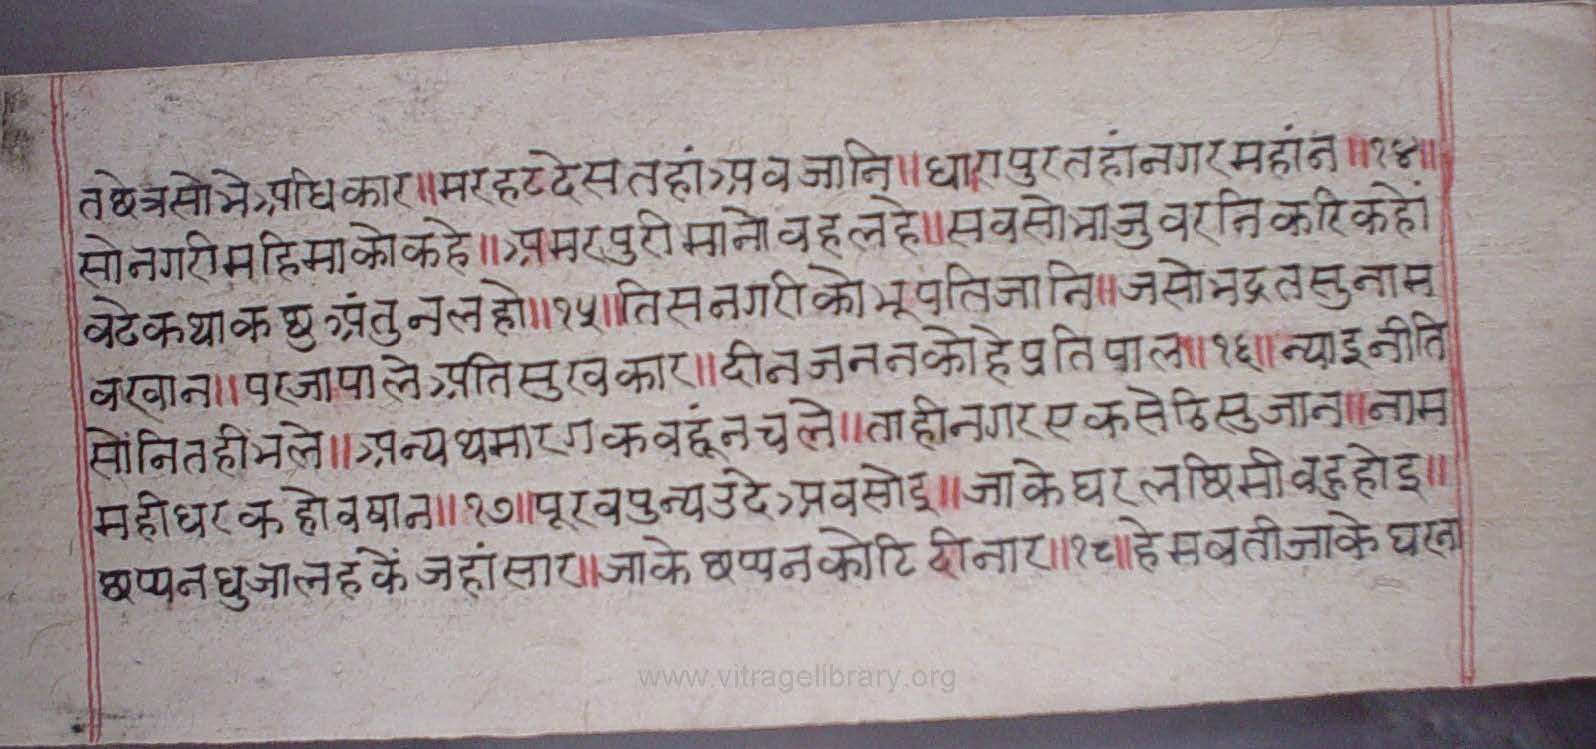 तछेत्रसोभेअधिकार॥मरहटदेसतहांअवजानि॥धारापुरतहांनगरमहांन॥१४॥
सोनगरीमहिमाकोकहे॥अमरपुरीमानोवहलहे॥सवसोभाजुवरनिकरिकहों
वढेकथाकछुअंतुनलहो॥१५॥तिसनगरीकोभूपतिजानि॥जसोभद्रतसुनाम
वखान॥परजापालेअतिसुखकार॥दीनजननकोहेप्रतिपाल॥१६॥न्याइनीति
सोंनितहींभले॥अन्यथमारगकवहूंनचले॥ताहीनगरएकसेठिसुजान॥नाम
महीधरकहोवषान॥१७॥पूरवपुन्यउदेअवसोइ॥जाकेघरलछिमीवहुहोइ॥
छप्पनधुजालहकेंजहांसार॥जाकेछप्पनकोटिदीनार॥१८॥हेमवतीजाकेघरना
www.vitragelibrary.org